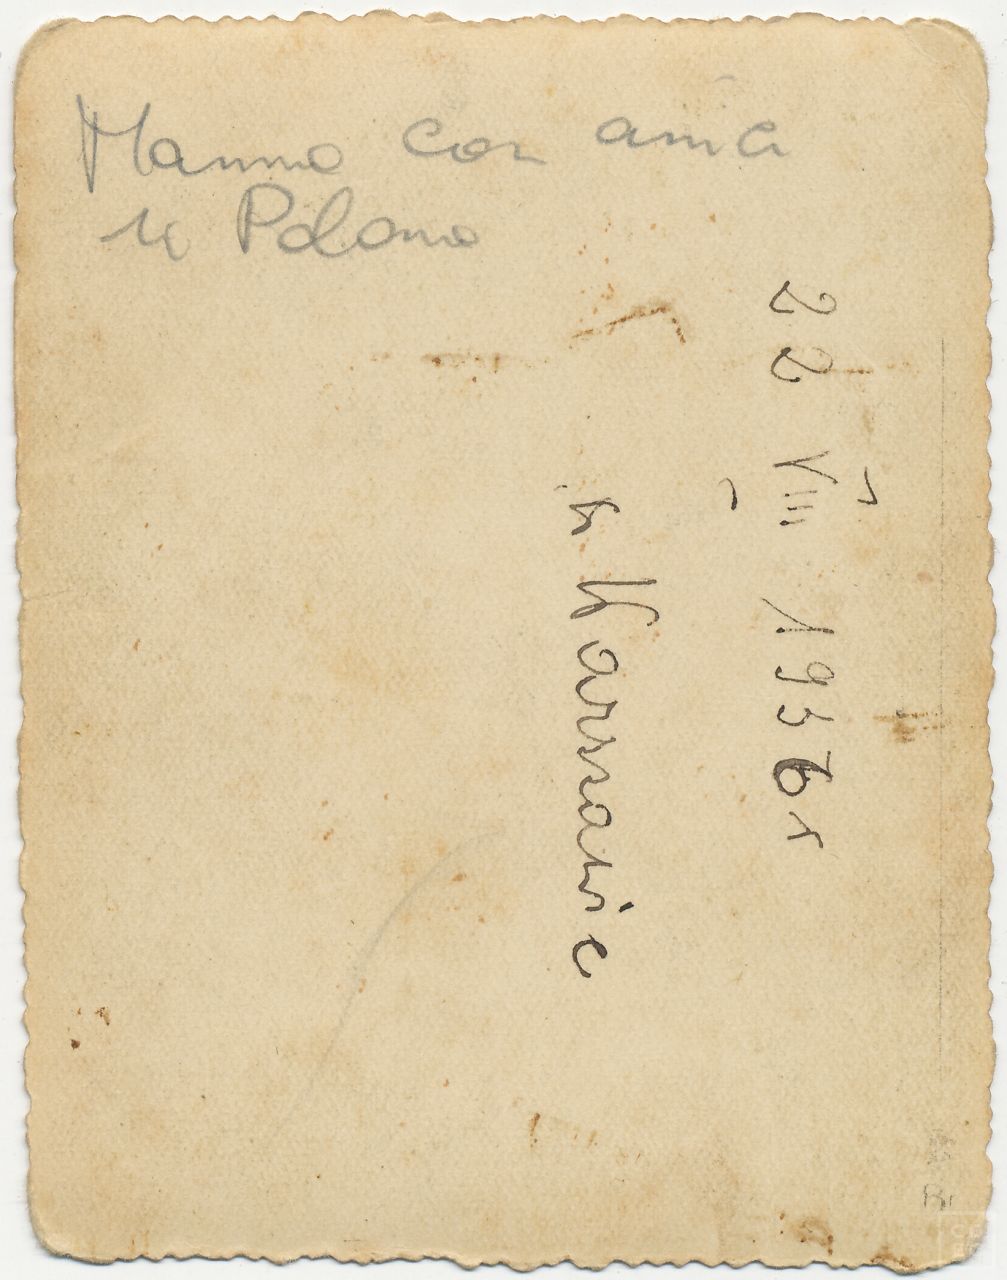 Mamma con amici
in Polonia
22 VIII 1956 r
w Warszawie